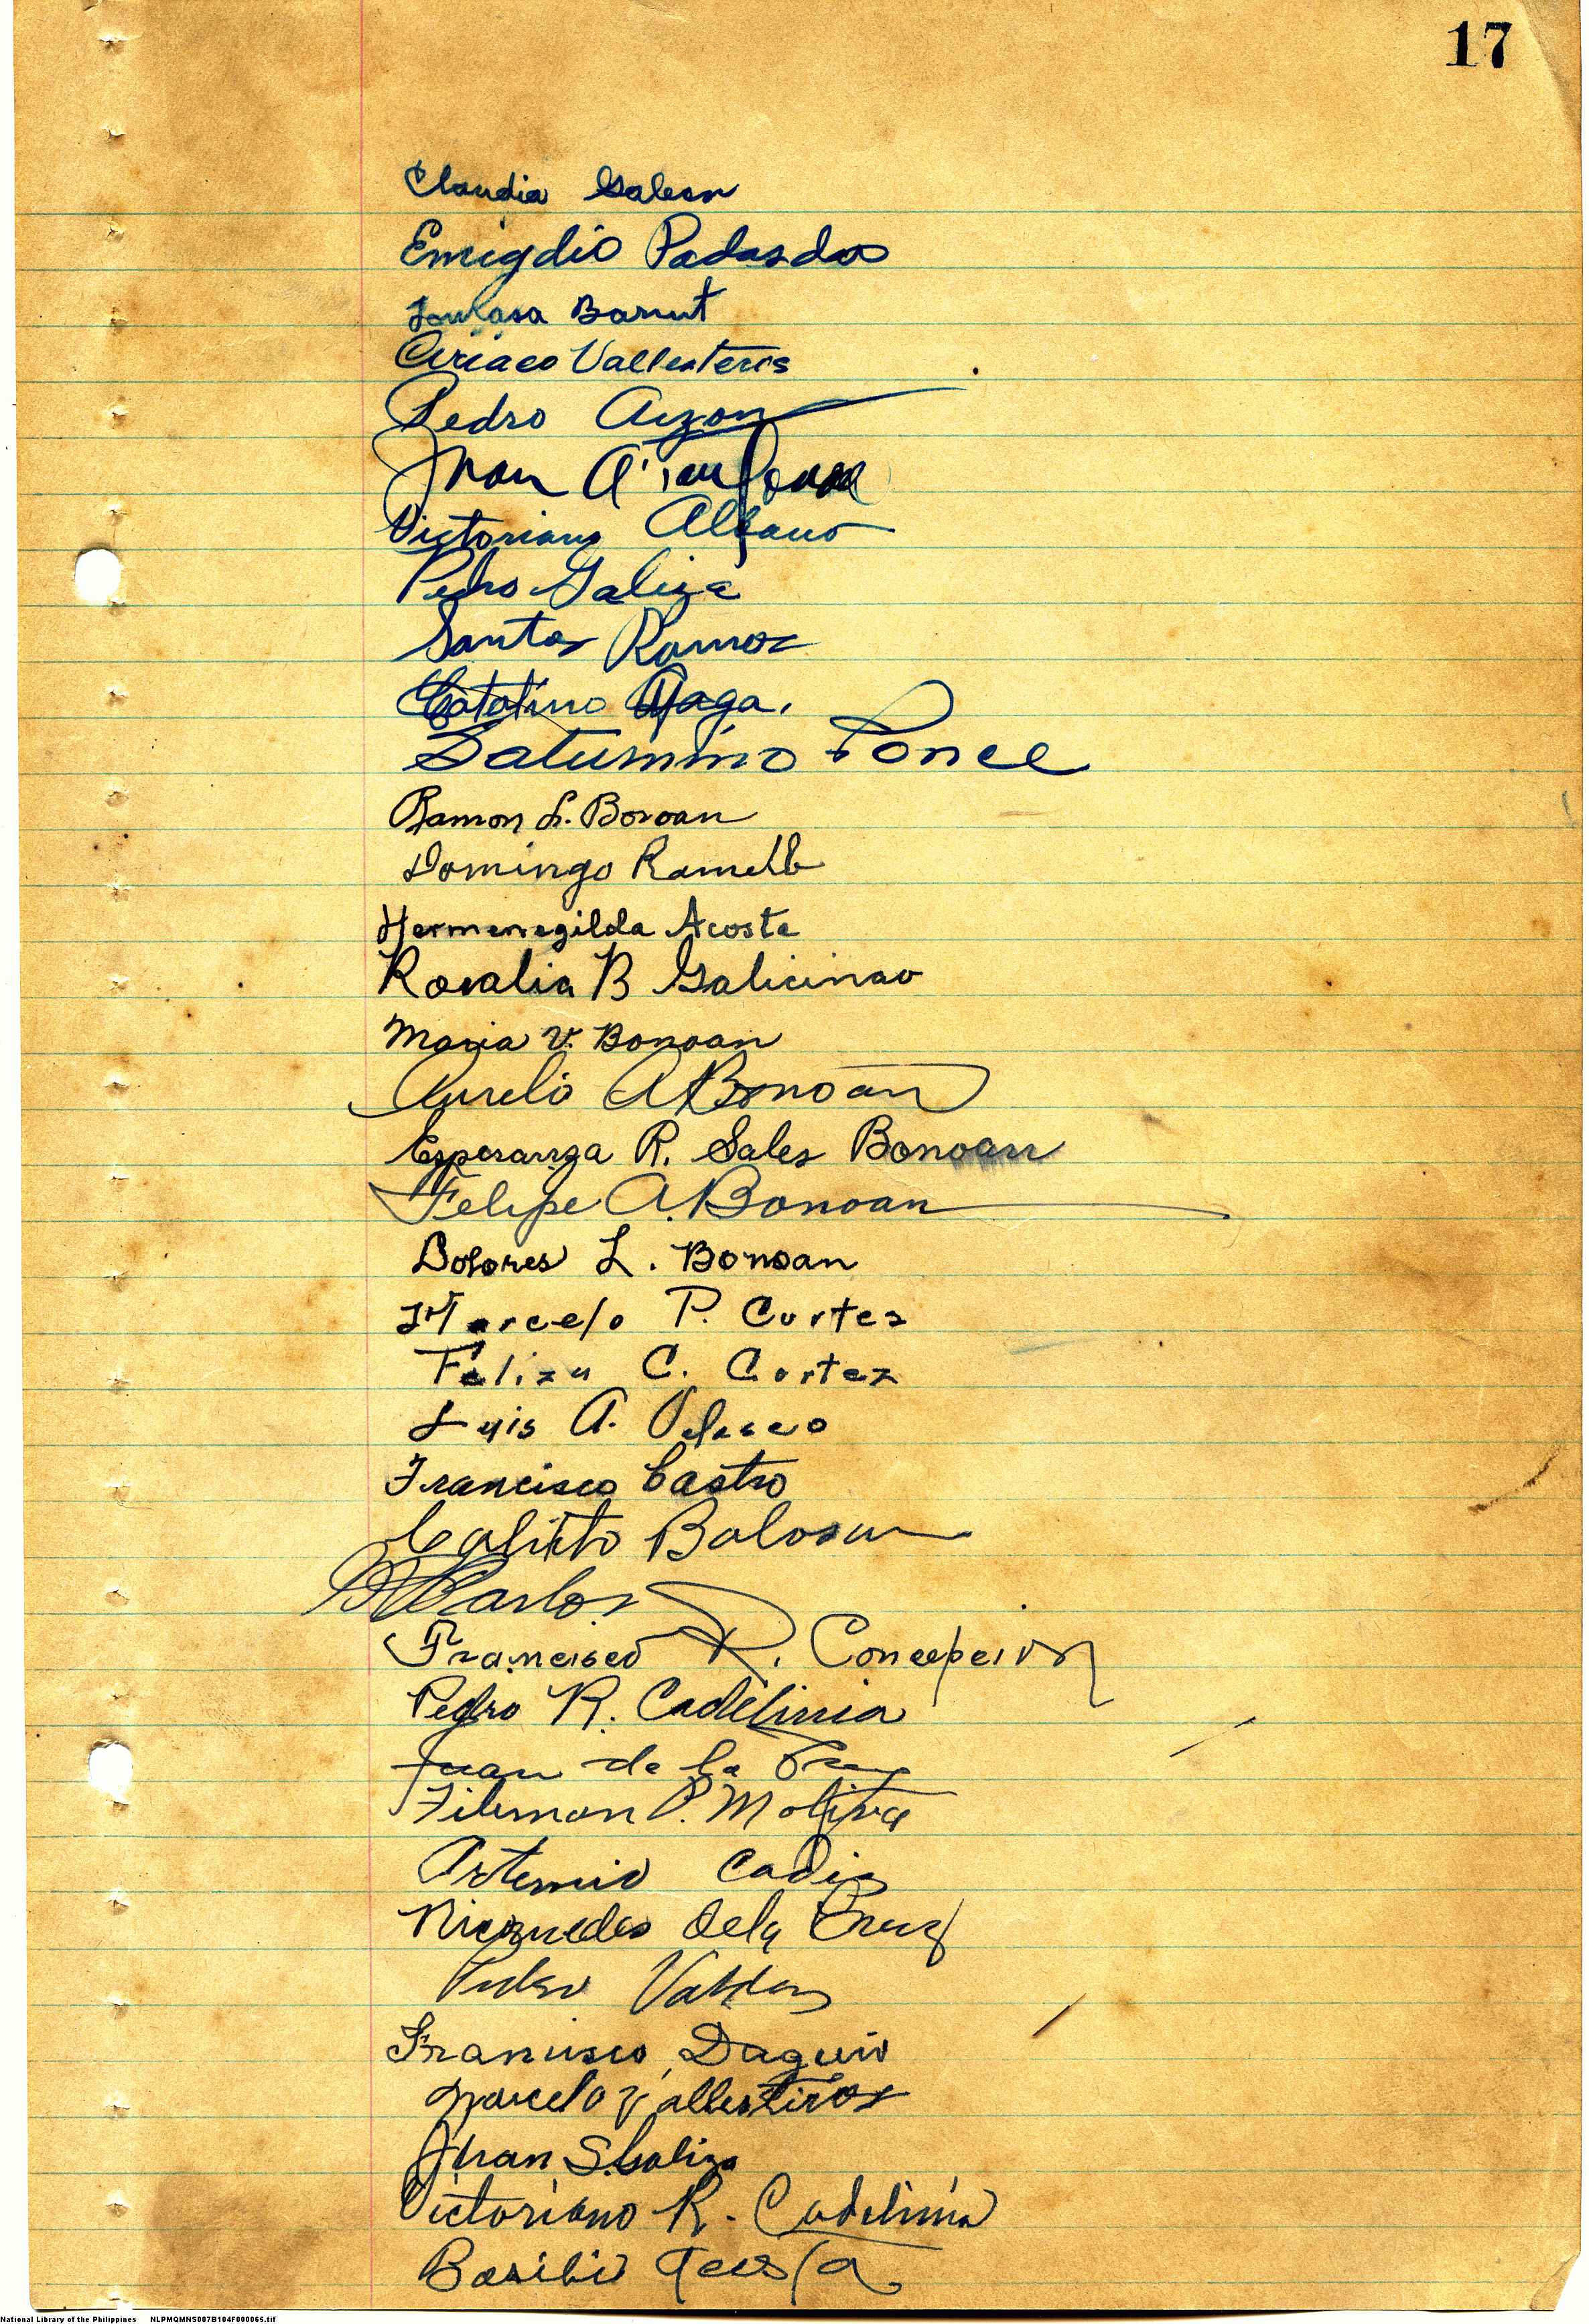 17
Claudia Galeon
Emigdio Padasdas
Barut
Ciriaco Vallesteros
Pedro Aczon
Juan
Victoriano Albano
Pedro Galiza
Santos Ramos
Catalino Daga.
Saturnino Ponce
Ramon L. Bonoan
Domingo
Hermenegilda Acosta
Rosalia B Galicinao
Maria V. Bonoan
Aurelio A Bonoan
Esperanza R. Sales Bonoan
Felipe A. Bonoan
Dolores L. Bonoan
Marcelo P. Cortes
Feliza C. Cortez
Luis A. Velasco
Francisco Castro
Calixto Balosan
Carlos
Francisco R. Concepcion
Pedro R. Cadelinia
Juan de la Cruz
Filemon P. Motiva
Artemio Cadiz
Nicomedes Dela Cruz
Pedro Valdez
Francisco Daguio
Marcelo Vallesteros
Juan S. Galiza
Victoriano R. Cadelinia
Basilio Acosta
National Library of the Philippines NLPMQMNS007B104F000065.tif